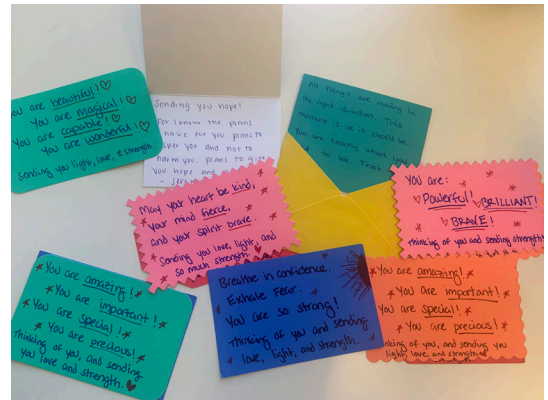 You are beautiful!
You are magical!
You are capable!
You are wonderful!
Sending you light, love, & strength.
Sending you hope!
For I know the plans
I have for you, plans to
prosper you and not to
harm you, plans to give
you hope and
All things are moving in
the right direction. This
moment is as it should be.
You are exactly where you
to be. Trust
May your heart be kind,
your mind fierce,
and your spirit brave.
Sending you love, light, and
so much strength.
You are:
Powerful! BRILLIANT!
BRAVE!
Thinking of you and sending strength!
You are amazing!
You are important!
You are special!
You are precious!
Thinking of you, and sending
you love and strength.
Breathe in confidence.
Exhale Fear.
You are so strong!
Thinking of you and sending
love, light, and strength.
You are amazing!
You are important!
You are special!
You are precious!
Thinking of you, and sending you
light, love, and strength